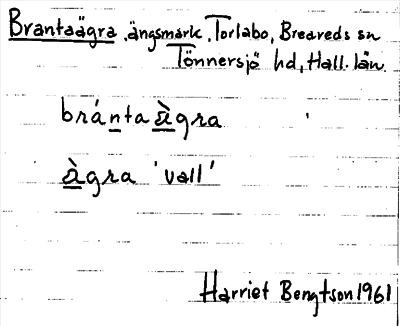 Brantaägra, ängsmark, Torlabo, Breareds sn
Tönnersjö hd, Hall. län
brántaàgra
àgra 'vall'
Harriet Bengtson 1961